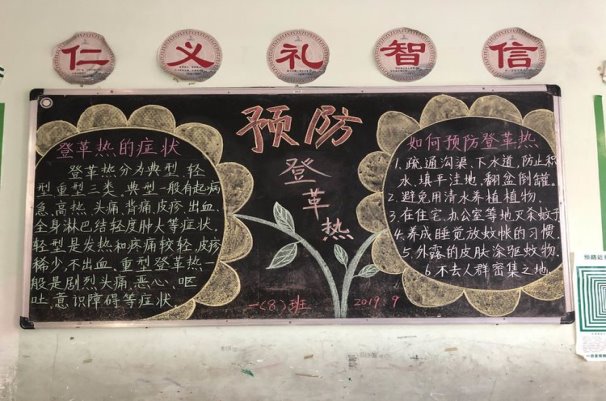 仁 义 礼 智 信
预防
登革热
登革热的症状
登革热分为典型,轻
型,重型三类,典型一般有起病
急,高热,头痛,背痛,皮疹,出血,
全身淋巴结轻度肿大等症状,
轻型是发热和疼痛较轻,皮疹
稀少,不出血,重型登革热一
般是剧烈头痛,恶心,呕
吐,意识障碍等症状.
如何预防登革热
1.疏,通沟渠,下水道,防止积
水,填平洼地,翻盆倒罐。
2.避免用清水养植植物,
3.在住宅,办公室等地灭杀蚊子
4.养成睡觉放蚊帐的习惯,
5.外露的皮肤涂驱蚊物,
6.不去人群密集之地
一(8)班
2019.9